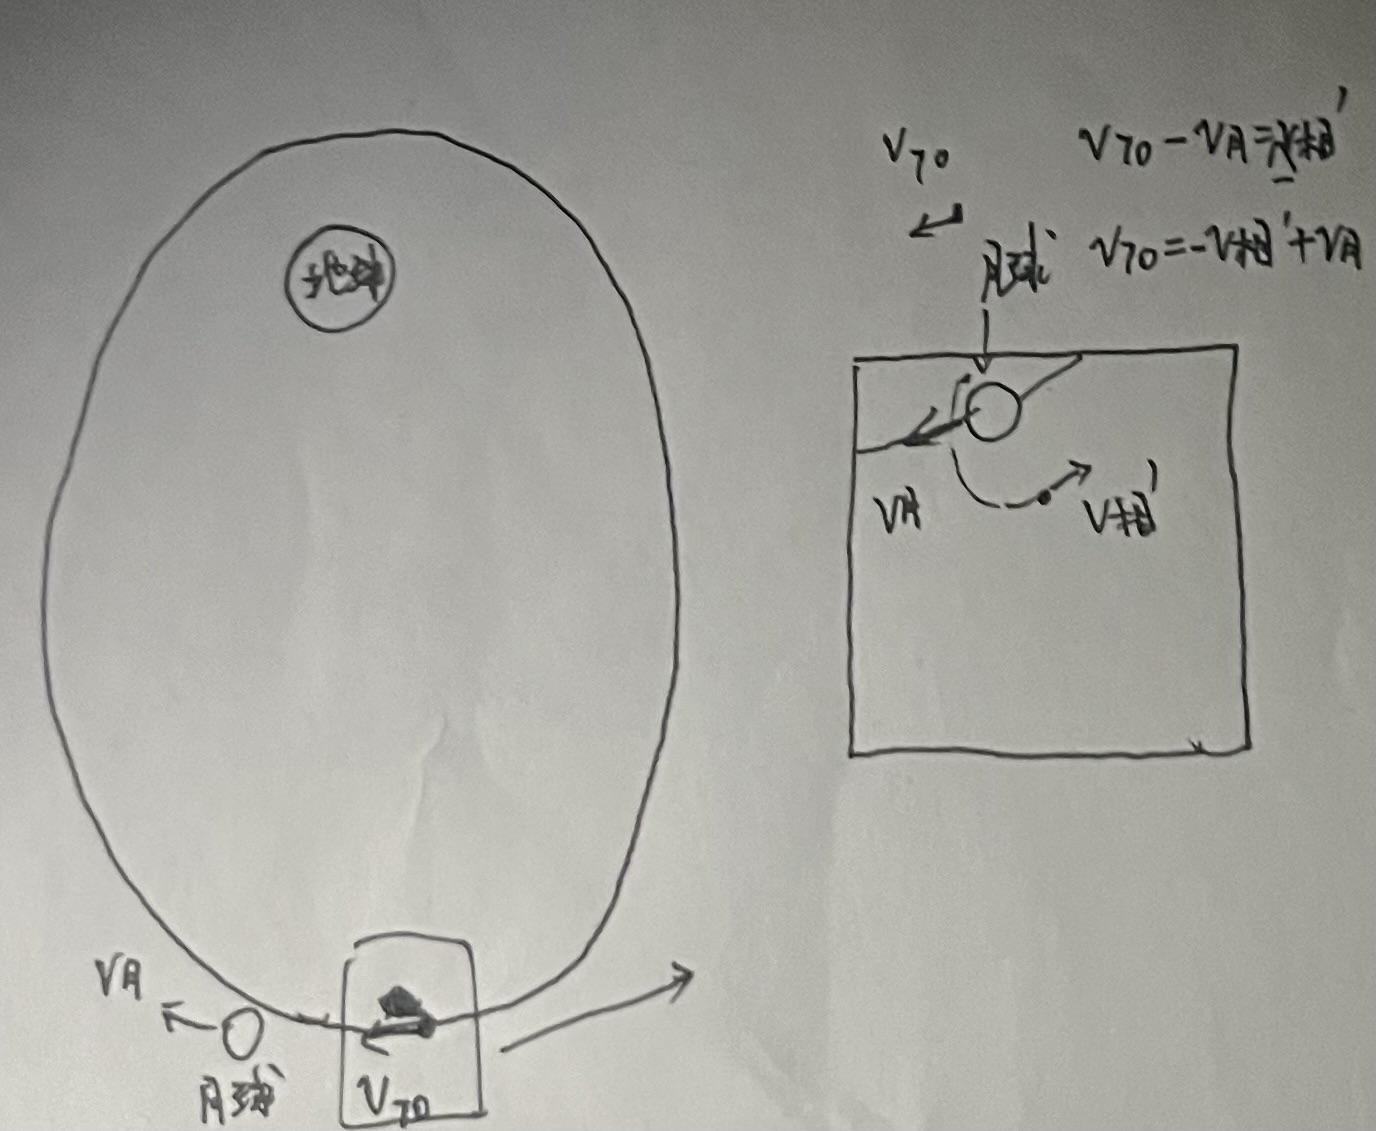 V70
V70 - VA = V相'
月球
V70 = -V相' + VA
地球
VA
V相'
VA
月球
V70